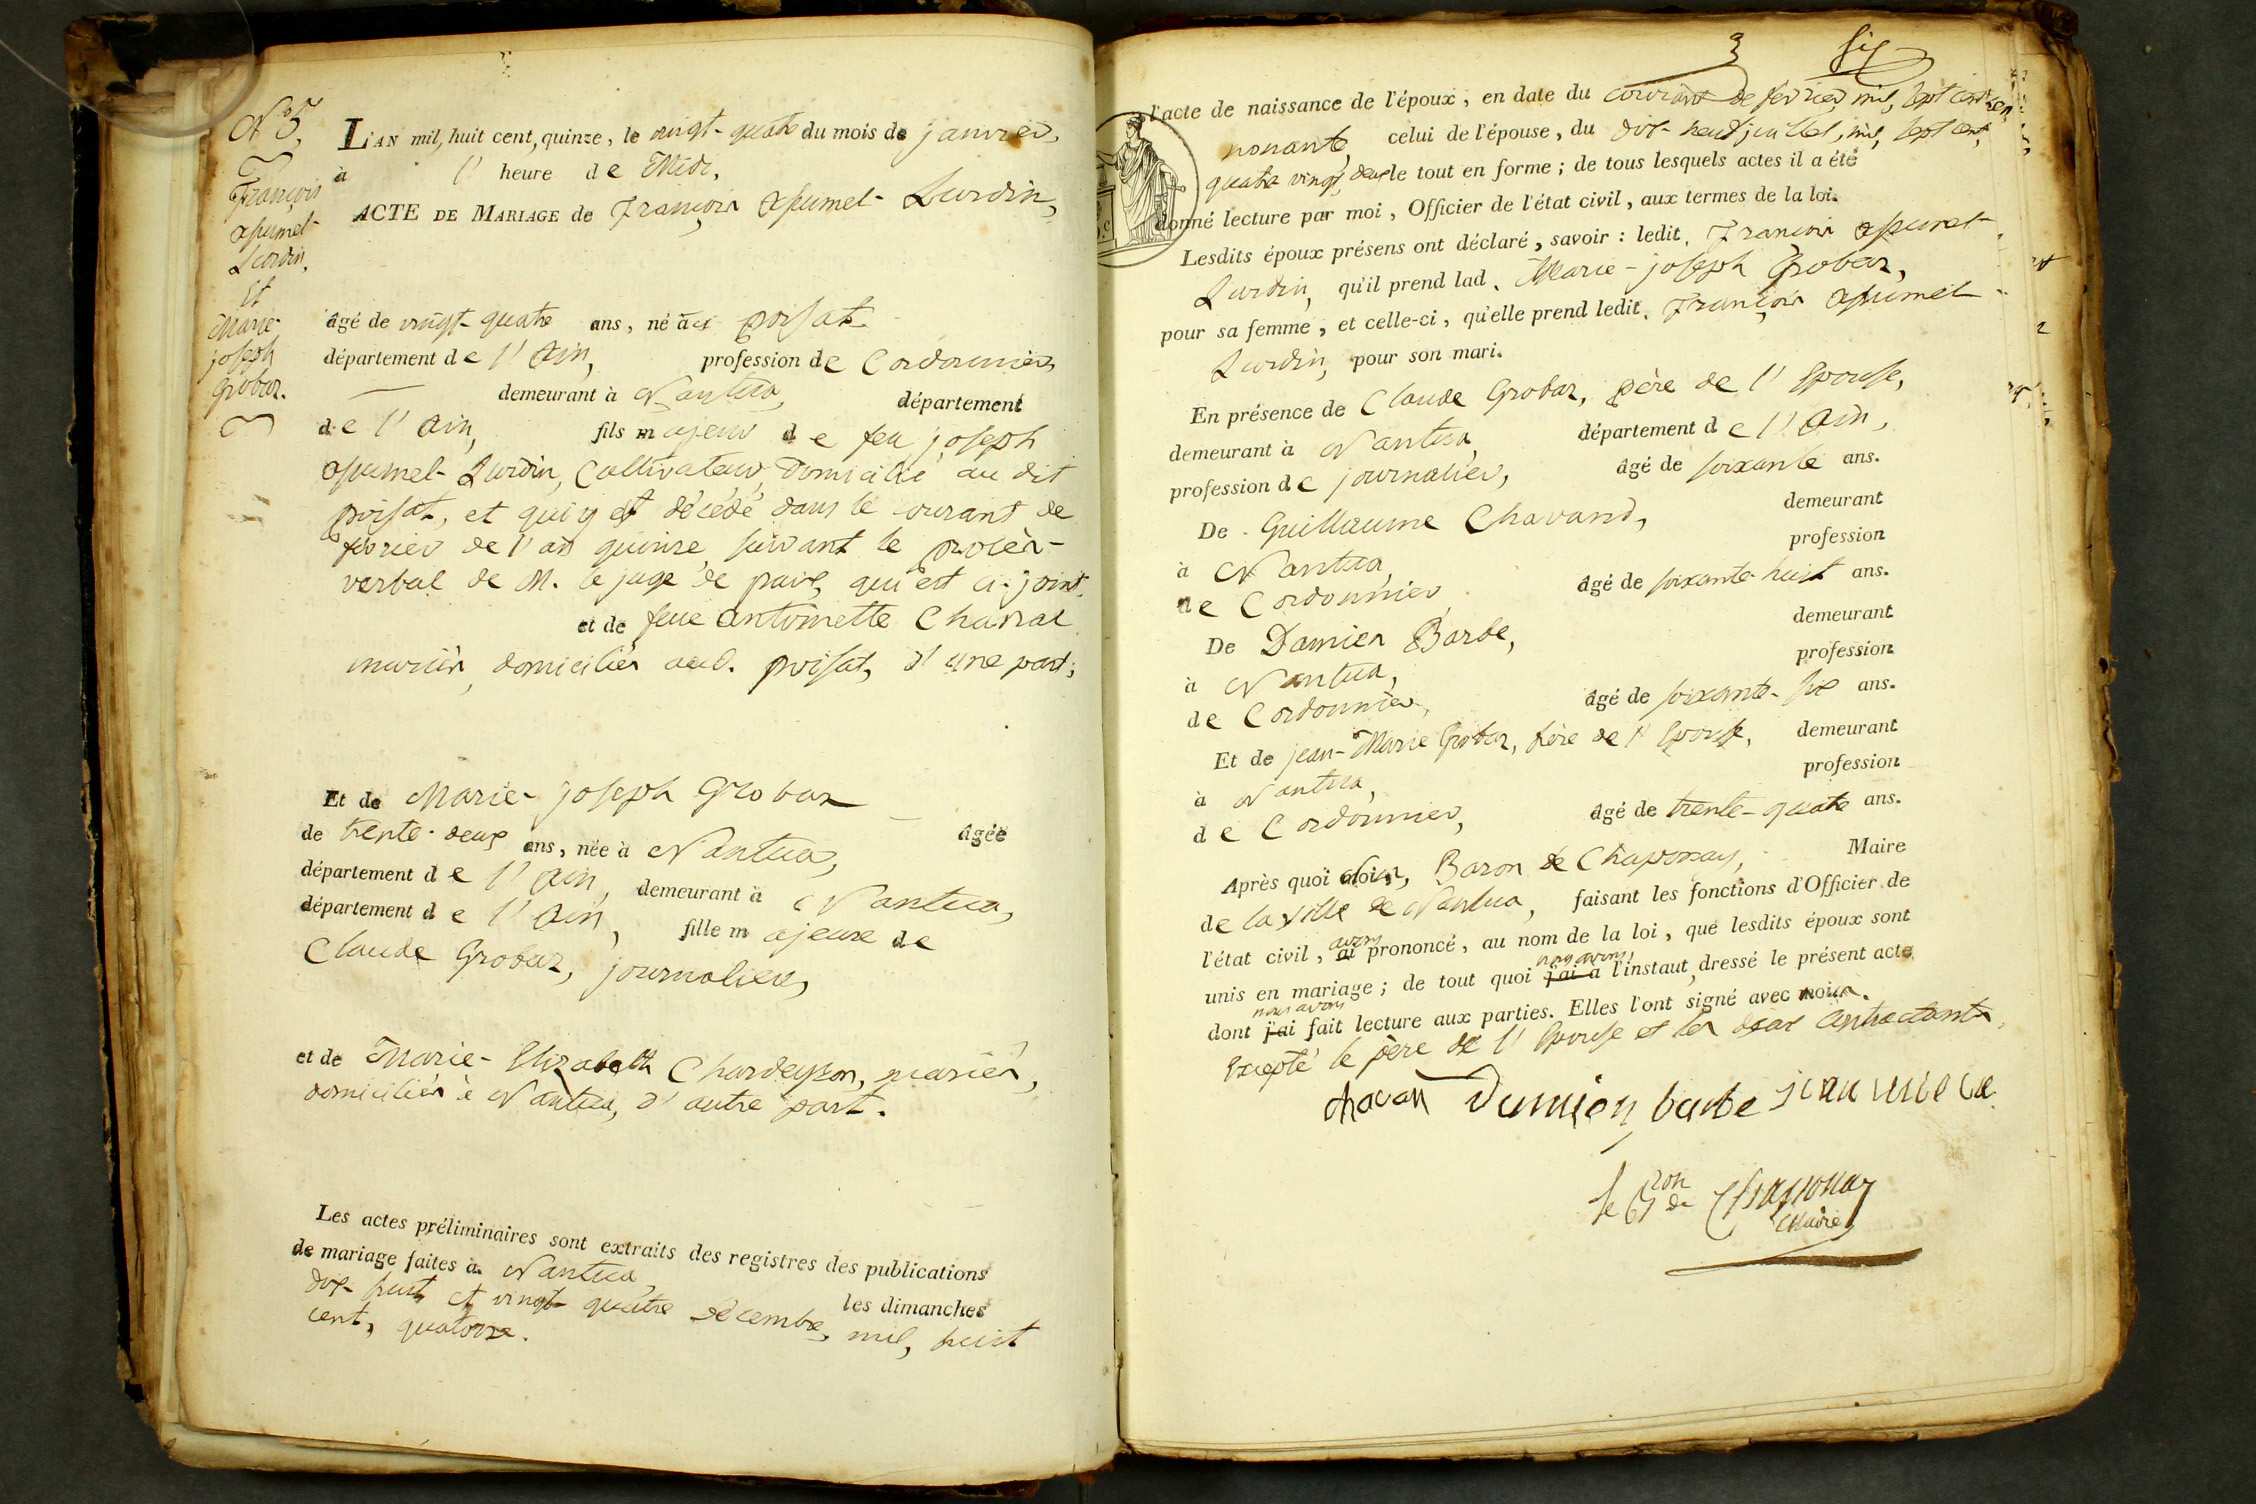 N° 5.
François
apumel-
Lurdin,
Et
Marie-
joseph
Grobaz.
L'AN mil, huit cent, quinze, le vingt-quatre du mois de janvier,
à l' heure de Midi,
ACTE DE MARIAGE de François apumel-Lurdin,
âgé de vingt-quatre ans, né au poisat
département de l'Ain, profession de Cordonnier
demeurant à Nantua, département
de l'Ain, fils majeur de feu joseph
apumel-Lurdin, Cultivateur, domicilié au dit
poisat, et qui y est décédé dans le courant de
février de l'an quinze suivant le procès-
verbal de M. le juge de paix, qui est ci-joint.
et de feue antoinette Charval
mariés, domiciliés aud. poisat, d'une part;
Et de Marie-joseph Grobaz
âgée
de trente-deux ans, née à Nantua,
département de l'Ain, demeurant à Nantua,
département de l'Ain, fille majeure de
Claude Grobaz, journalier,
et de Marie-Elizabeth Chardeyron, mariés,
domiciliés à Nantua, d'autre part.
Les actes préliminaires sont extraits des registres des publications
de mariage faites à Nantua
les dimanches
dix-huit et vingt-quatre décembre, mil, huit
cent, quatorze.
3 six
l'acte de naissance de l'époux, en date du courant de février, mil, sept cent
nonante, celui de l'épouse, du dix-neuf juillet, mil, sept cent,
quatre vingt, deux le tout en forme; de tous lesquels actes il a été
donné lecture par moi, Officier de l'état civil, aux termes de la loi.
Lesdits époux présens ont déclaré, savoir: ledit, François apumel-
Lurdin, qu'il prend lad. Marie-joseph Grobaz,
pour sa femme, et celle-ci, qu'elle prend ledit, François apumel-
Lurdin, pour son mari.
En présence de Claude Grobaz, père de l'Epouse,
demeurant à Nantua, département de l'Ain,
profession de journalier, âgé de soixante ans.
De Guillaume Chavand, demeurant
à Nantua, profession
de Cordonnier, âgé de soixante-huit ans.
De Damien Barbe, demeurant
à Nantua, profession
de Cordonnier, âgé de soixante-six ans.
Et de jean-Marie Grobaz, frère de l'Epouse, demeurant
à Nantua, profession
de Cordonnier, âgé de trente-quatre ans.
Après quoi nous, Baron de Chaponay, Maire
de la ville de Nantua, faisant les fonctions d'Officier de
l'état civil, ai avons prononcé, au nom de la loi, que lesdits époux sont
unis en mariage; de tout quoi j'ai nous avons à l'instant, dressé le présent acte
dont j'ai nous avons fait lecture aux parties. Elles l'ont signé avec nous.
Excepté le père de l'Epouse et les deux Contractants.
chavan damien barbe
le Bon de Chaponay
Maire